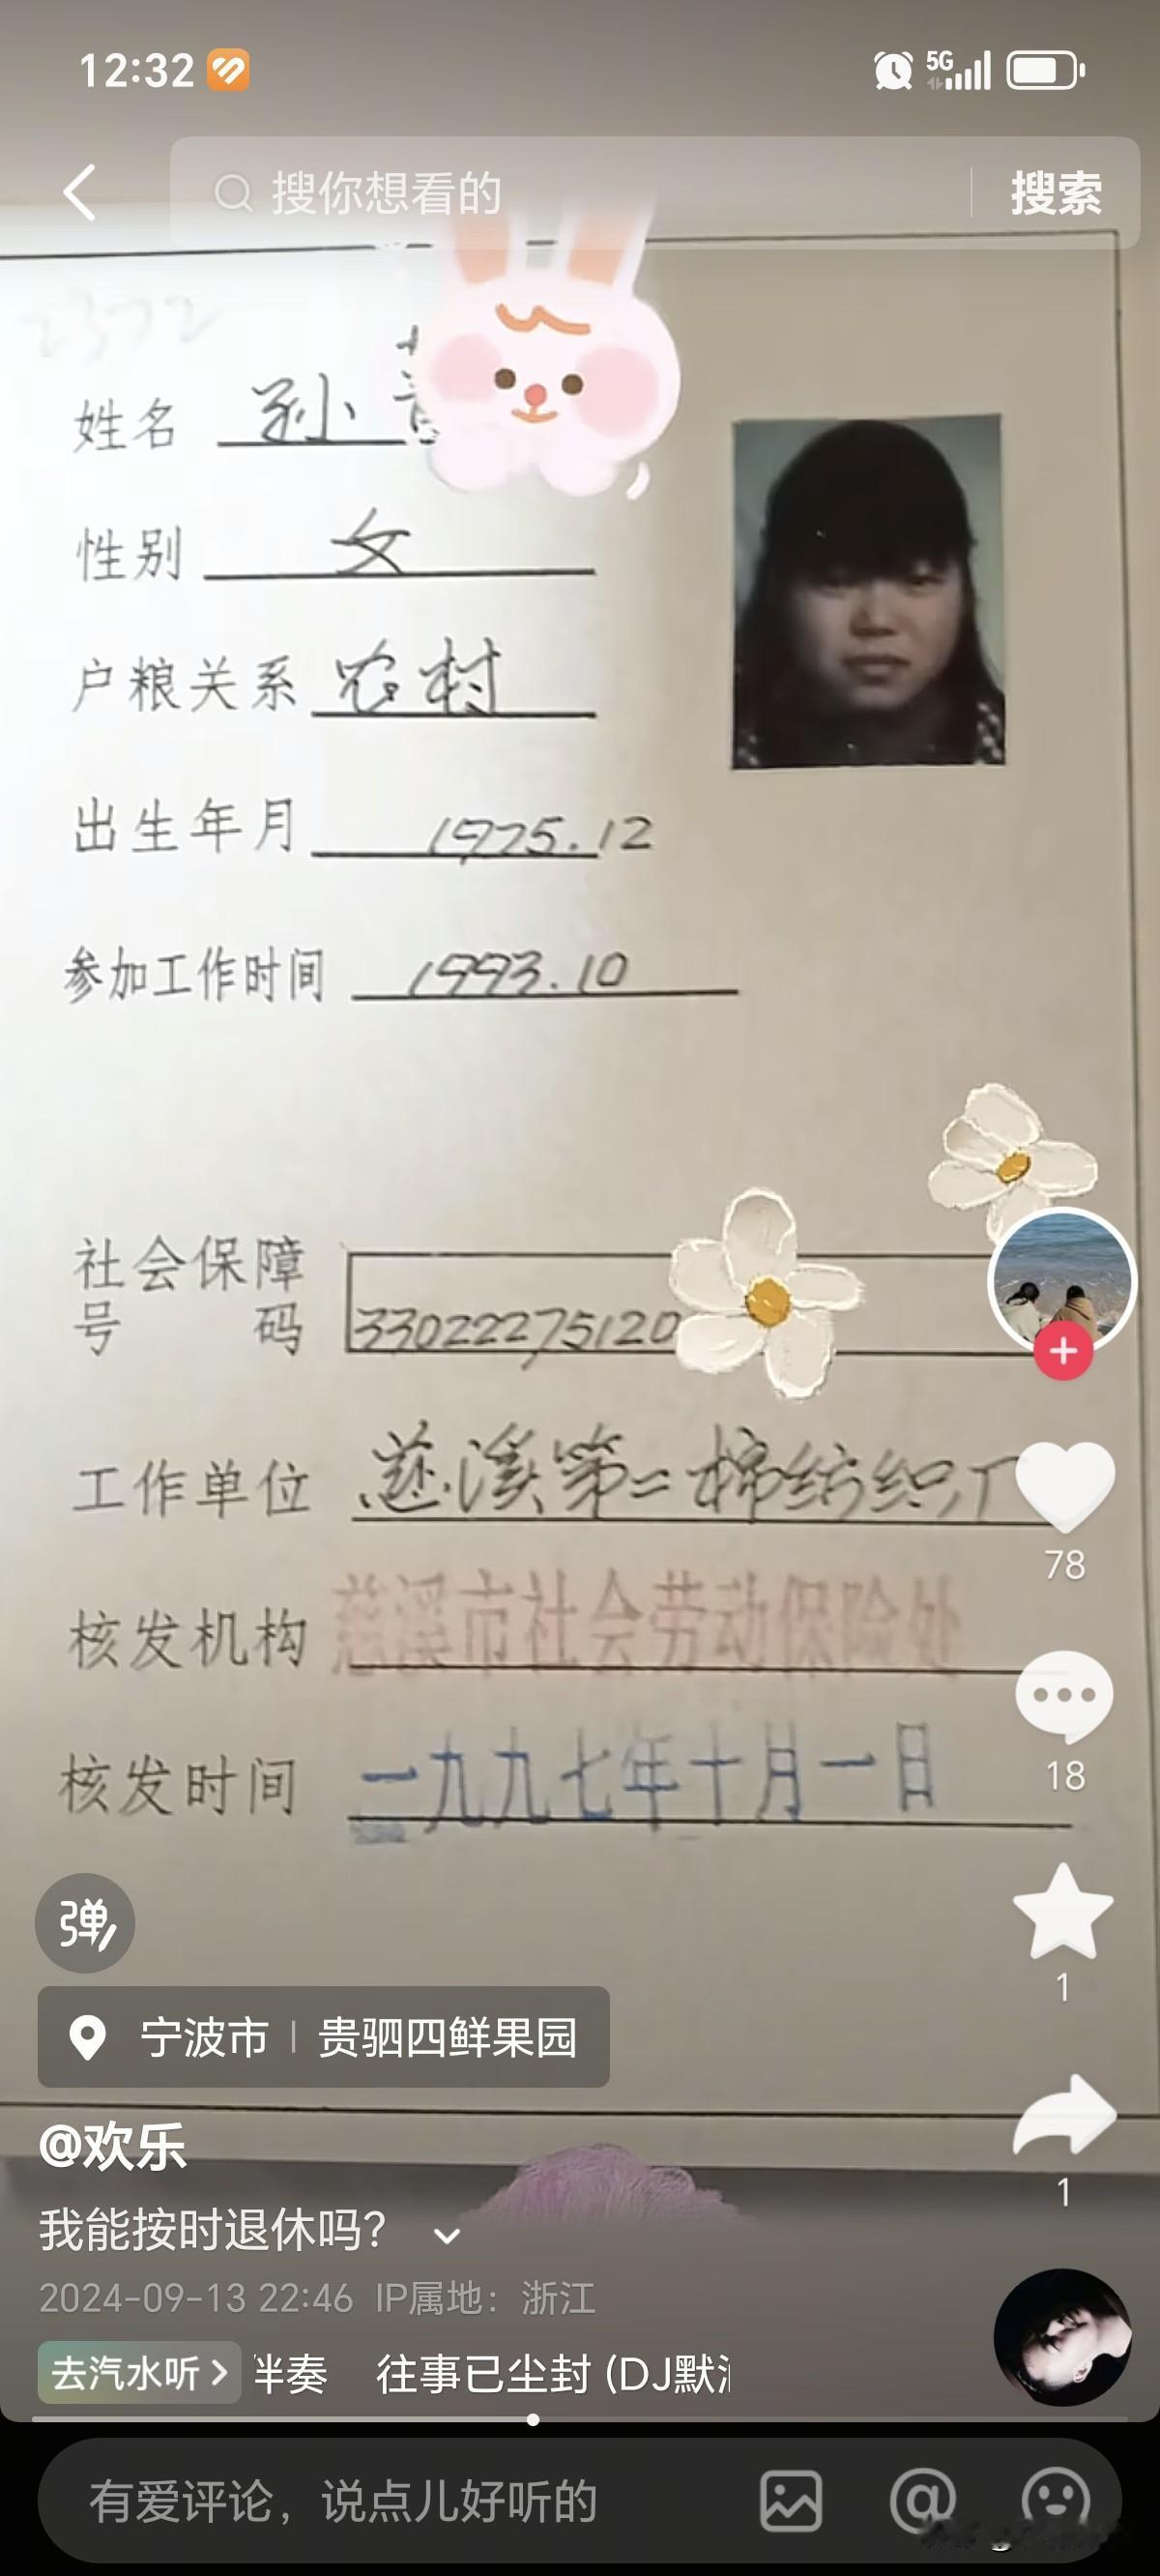 12:32
5G
搜你想看的 搜索
2372
姓名 孙
性别 女
户粮关系 农村
出生年月 1975.12
参加工作时间 1993.10
社会保障
号码 33022275120
工作单位 慈溪第二棉纺织厂
核发机构 慈溪市社会劳动保险处
核发时间 一九九七年十月一日
78
18
1
1
弹
宁波市 | 贵驷四鲜果园
@欢乐
我能按时退休吗?
2024-09-13 22:46 IP属地：浙江
去汽水听 > 伴奏 往事已尘封 (DJ默
有爱评论，说点儿好听的